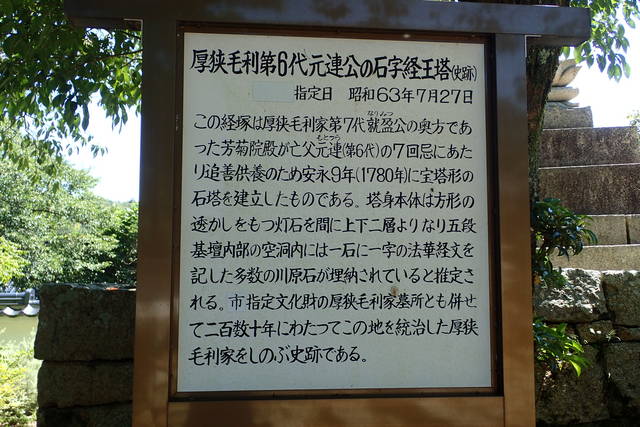 厚狭毛利第6代元連公の石字経王塔(史跡)
指定日 昭和63年7月27日
この経塚は厚狭毛利家第7代就盈公の奥方であ
った芳菊院殿が亡父元連(第6代)の7回忌にあた
り追善供養のため安永9年(1780年)に宝塔形の
石塔を建立したものである。塔身本体は方形の
透かしをもつ灯石を間に上下二層よりなり五段
基壇内部の空洞内には一石に一字の法華経文を
記した多数の川原石が埋納されていると推定さ
れる。市指定文化財の厚狭毛利家墓所とも併せ
て二百数十年にわたってこの地を統治した厚狭
毛利家をしのぶ史跡である。